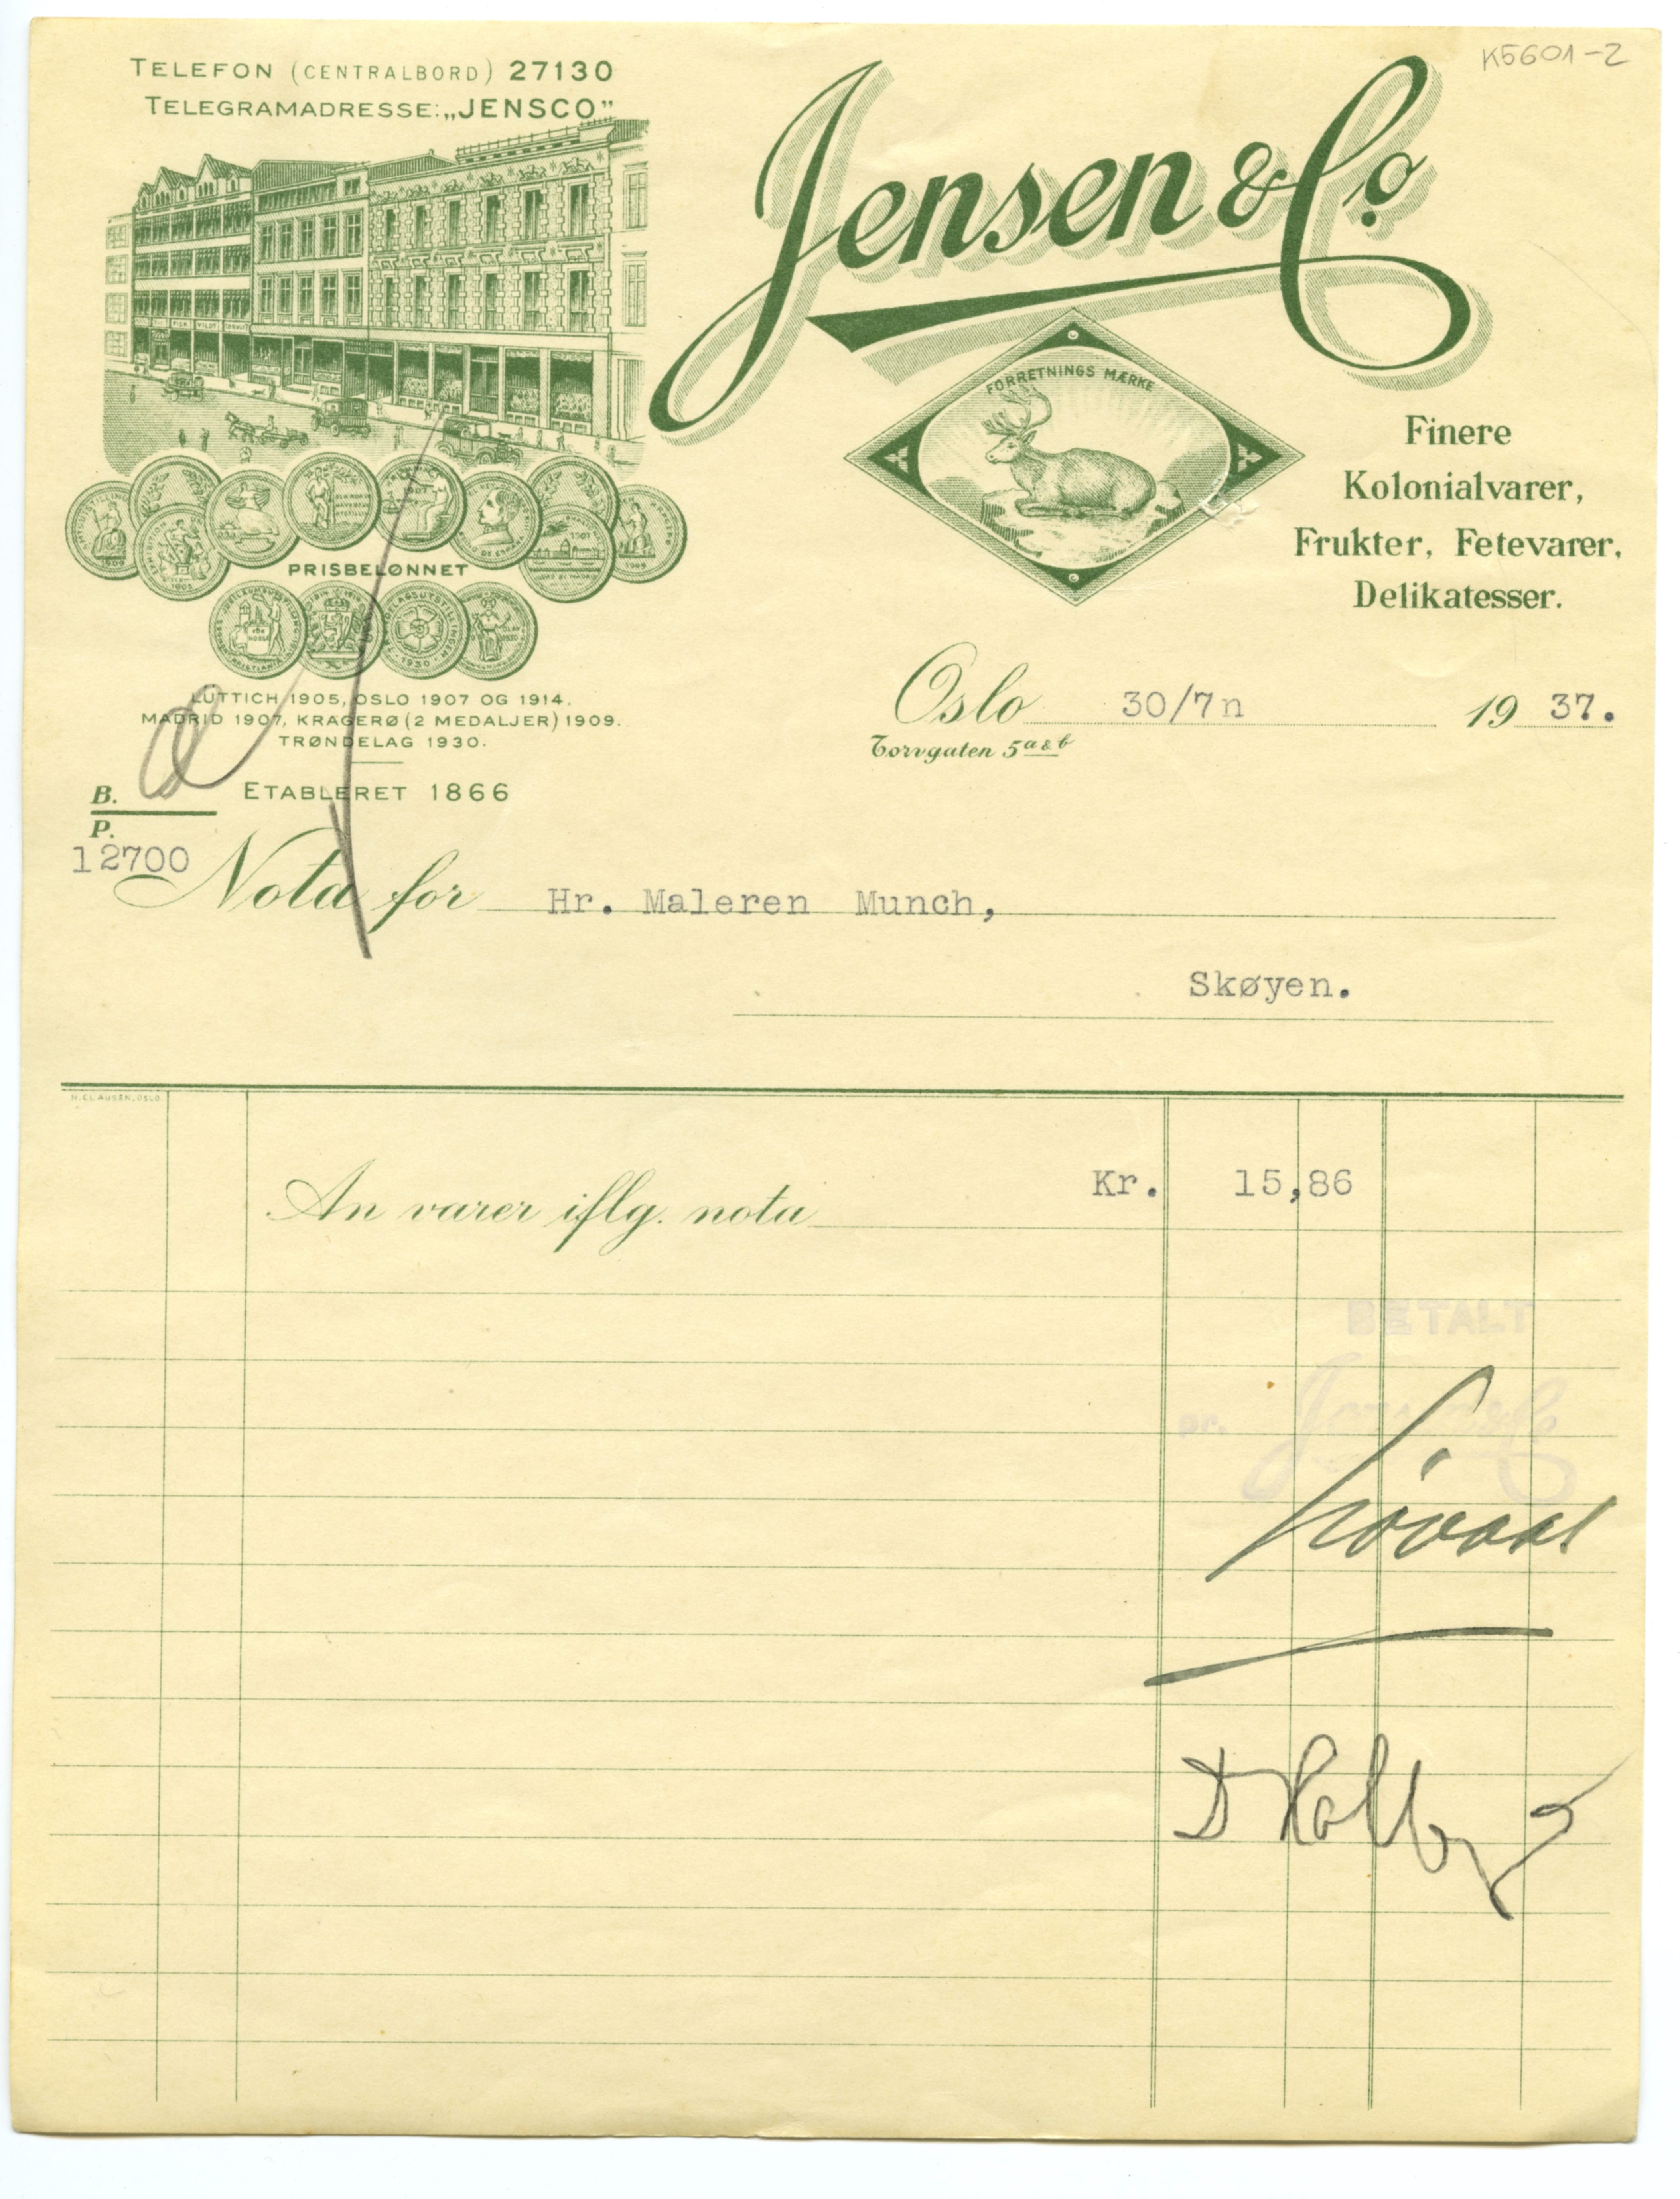 K5601-2
TELEFON (CENTRALBORD) 27130
TELEGRAMADRESSE: „JENSCO”
Jensen & Co
FORRETNINGS MÆRKE
Finere
Kolonialvarer,
Frukter, Fetevarer,
Delikatesser.
PRISBELØNNET
LÜTTICH 1905, OSLO 1907 OG 1914.
MADRID 1907, KRAGERØ (2 MEDALJER) 1909.
TRØNDELAG 1930.
ETABLERET 1866
Oslo 30/7n 1937.
Torvgaten 5 a & b
B.
P.
12700
Nota for Hr. Maleren Munch,
Skøyen.
N. CLAUSEN, OSLO
An varer iflg. nota Kr. 15,86
BETALT
pr. Jensen & Co